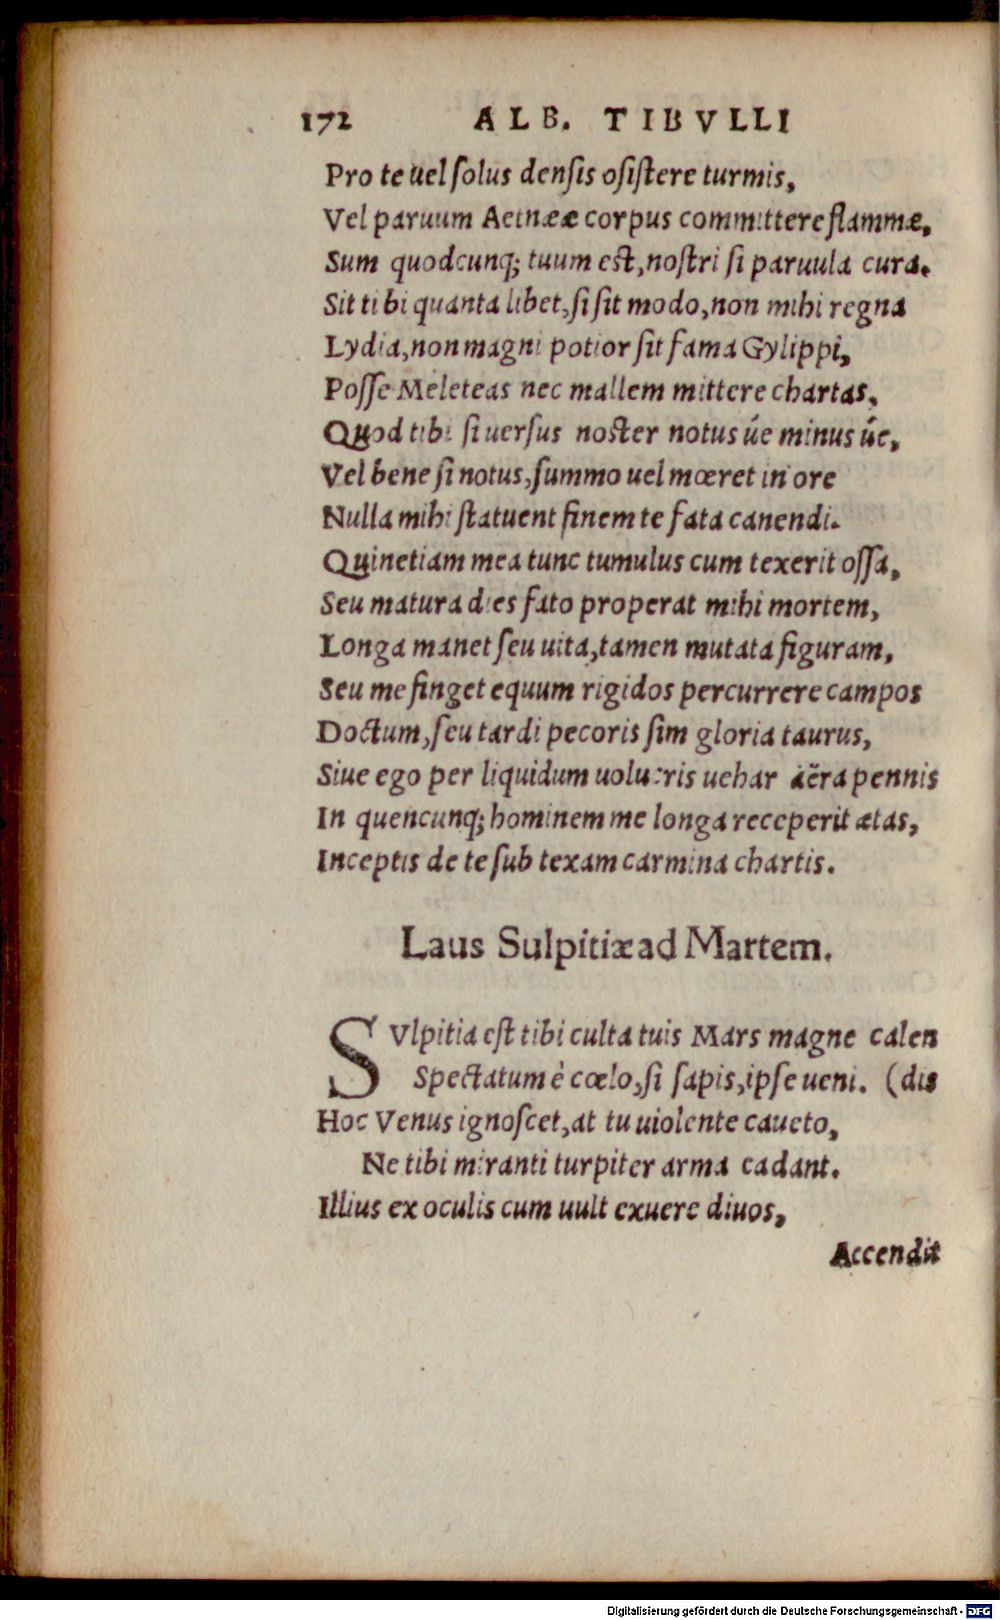 172 ALB. TIBVLLI
Pro te uel ſolus denſis oſiſtere turmis,
Vel paruum Aetnææ corpus committere flammæ,
Sum quodcunq; tuum eſt, noſtri ſi paruula cura.
Sit tibi quanta libet, ſi ſit modo, non mihi regna
Lydia, non magni potior ſit fama Gylippi,
Poſſe Meleteas nec mallem mittere chartas,
Quod tibi ſi uerſus noſter notus úe minus úe,
Vel bene ſi notus, ſummo uel mœret in ore
Nulla mihi ſtatuent finem te fata canendi.
Quinetiam mea tunc tumulus cum texerit oſſa,
Seu matura dies fato properat mihi mortem,
Longa manet ſeu uita, tamen mutata figuram,
Seu me finget equum rigidos percurrere campos
Doctum, ſeu tardi pecoris ſim gloria taurus,
Siue ego per liquidum uolucris uehar aëra pennis
In quencunq; hominem me longa receperit ætas,
Inceptis de te ſub texam carmina chartis.
Laus Sulpitiæ ad Martem.
SVlpitia eſt tibi culta tuis Mars magne calen
Spectatum è cœlo, ſi ſapis, ipſe ueni. (dis
Hoc Venus ignoſcet, at tu uiolente caueto,
Ne tibi miranti turpiter arma cadant.
Illius ex oculis cum uult exuere diuos,
Accendit
Digitalisierung gefördert durch die Deutsche Forschungsgemeinschaft - DFG